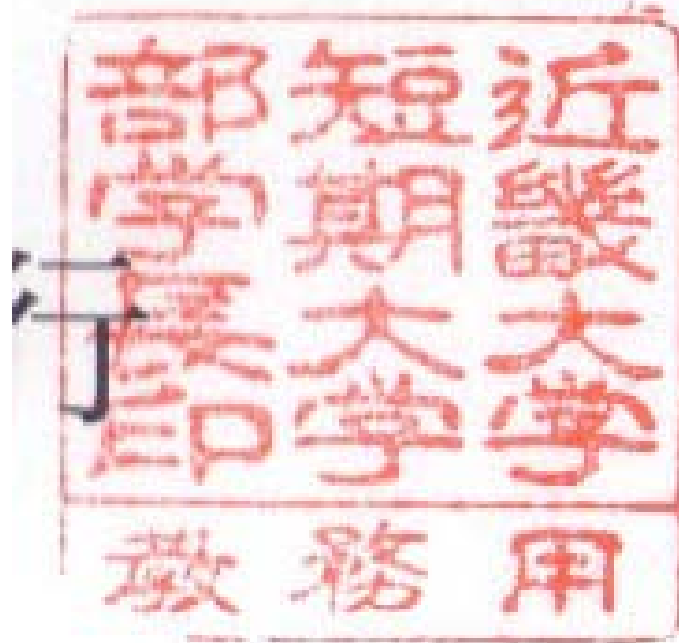 近畿大学
短期大学
部学長印
教務用
行